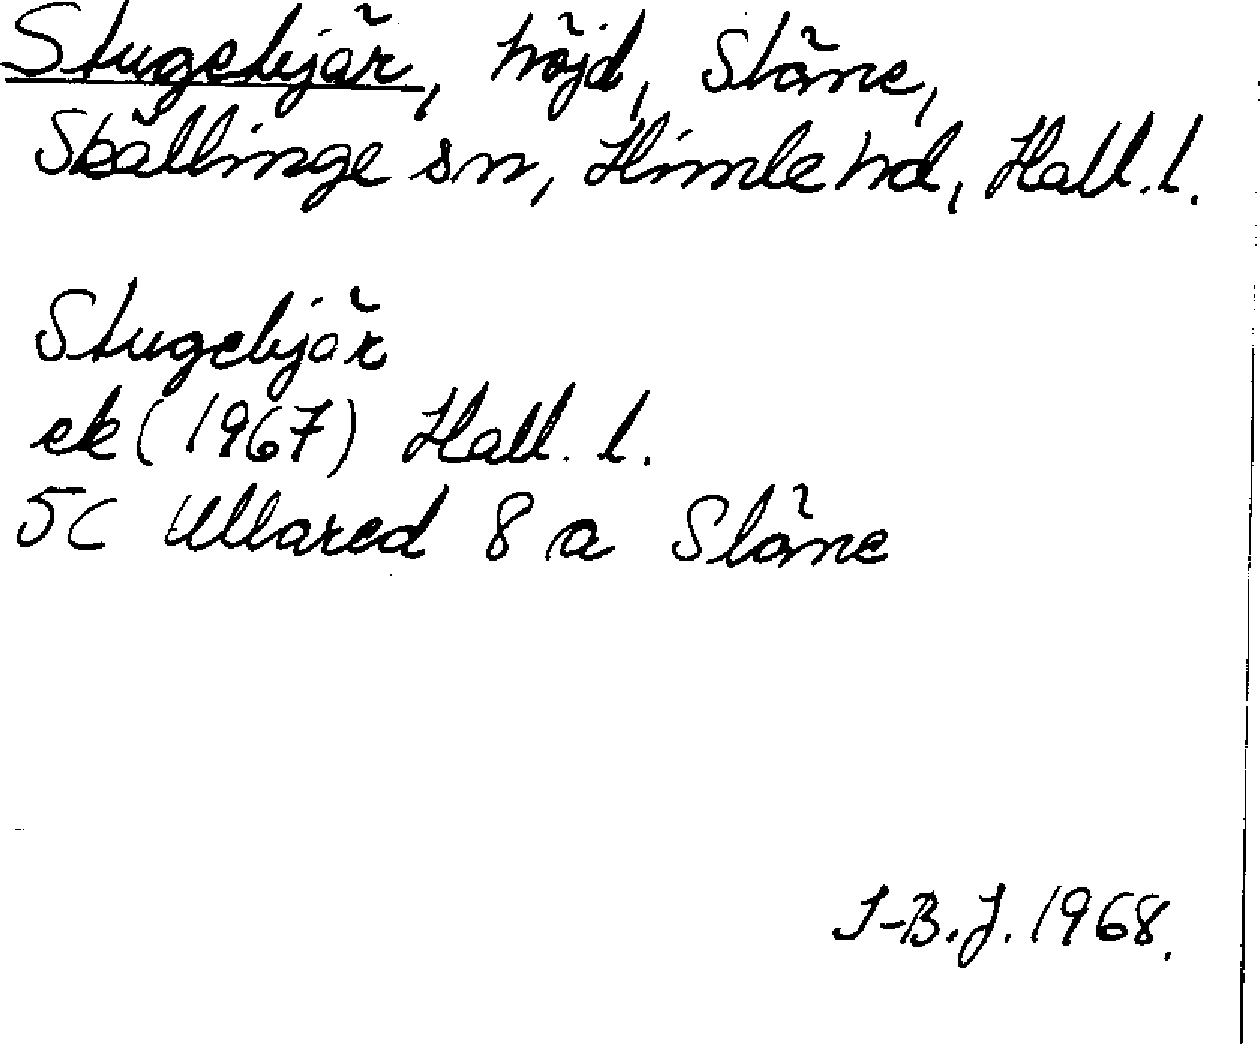 Stugebjär, höjd, Släne,
Skällinge sn, Himle hd, Hall. l.
Stugebjär
ek (1967) Hall. l.
5C Ullared 8 a Släne
I-B.J. 1968.